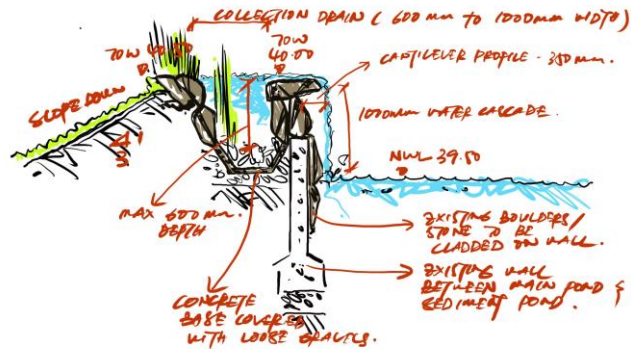 COLLECTION DRAIN ( 600 mm to 1000mm WIDTH)
TOW 40.50
TOW
40.00
CANTILEVER PROFILE - 350 mm.
SLOPE DOWN
1000mm WATER CASCADE.
NWL 39.50
MAX 600 mm.
DEPTH
EXISTING BOULDERS/
STONE TO BE
CLADDED ON WALL.
EXISTING WALL
BETWEEN MAIN POND &
SEDIMENT POND.
CONCRETE
BASE COVERED
WITH LOOSE GRAVELS.